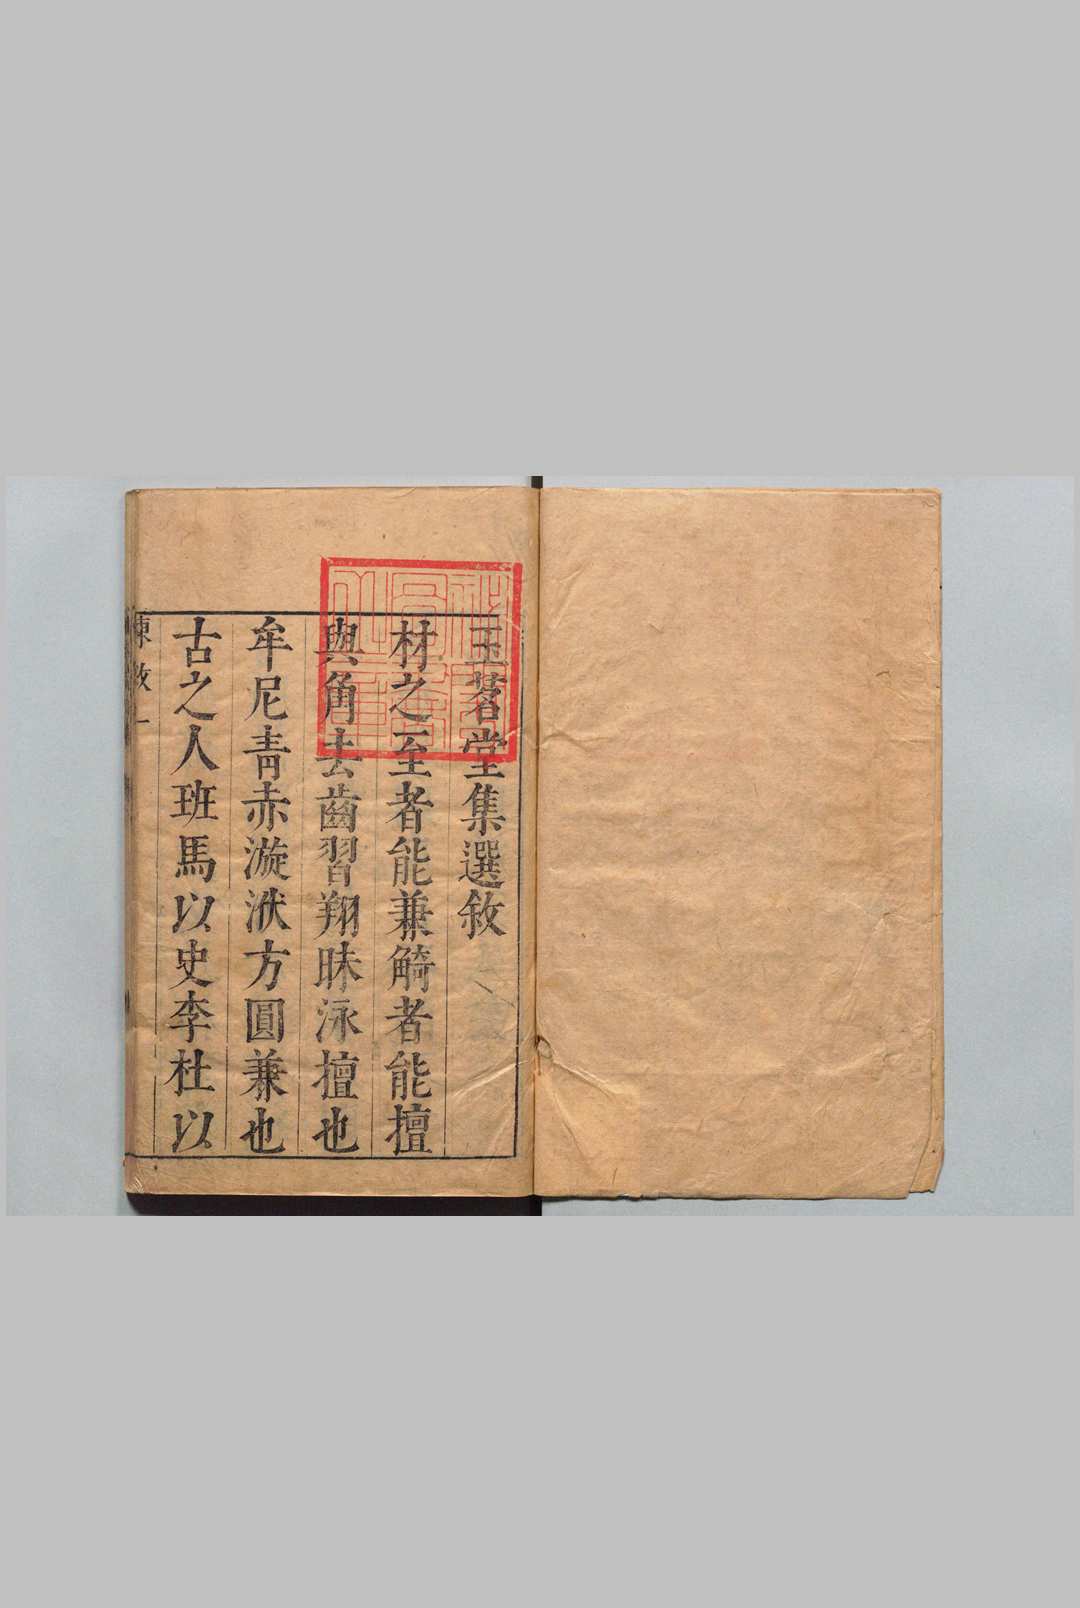 玉茗堂集選敘
材之至者能兼觭者能擅
與角去齒習翔昧泳擅也
牟尼青赤漩洑方圓兼也
古之人班馬以史李杜以
陳敘一